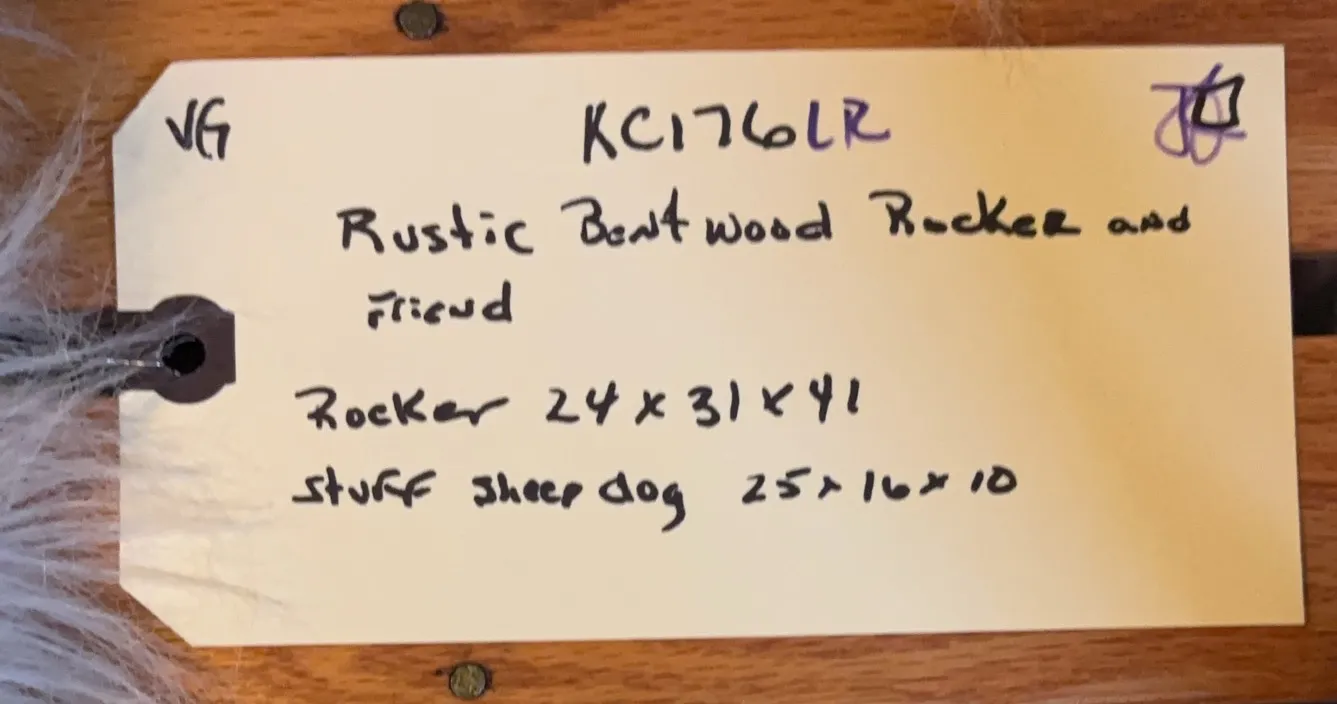 VG KC176LR
Rustic Bentwood Rocker and
Friend
Rocker 24 x 31 x 41
stuff sheep dog 25 x 16 x 10